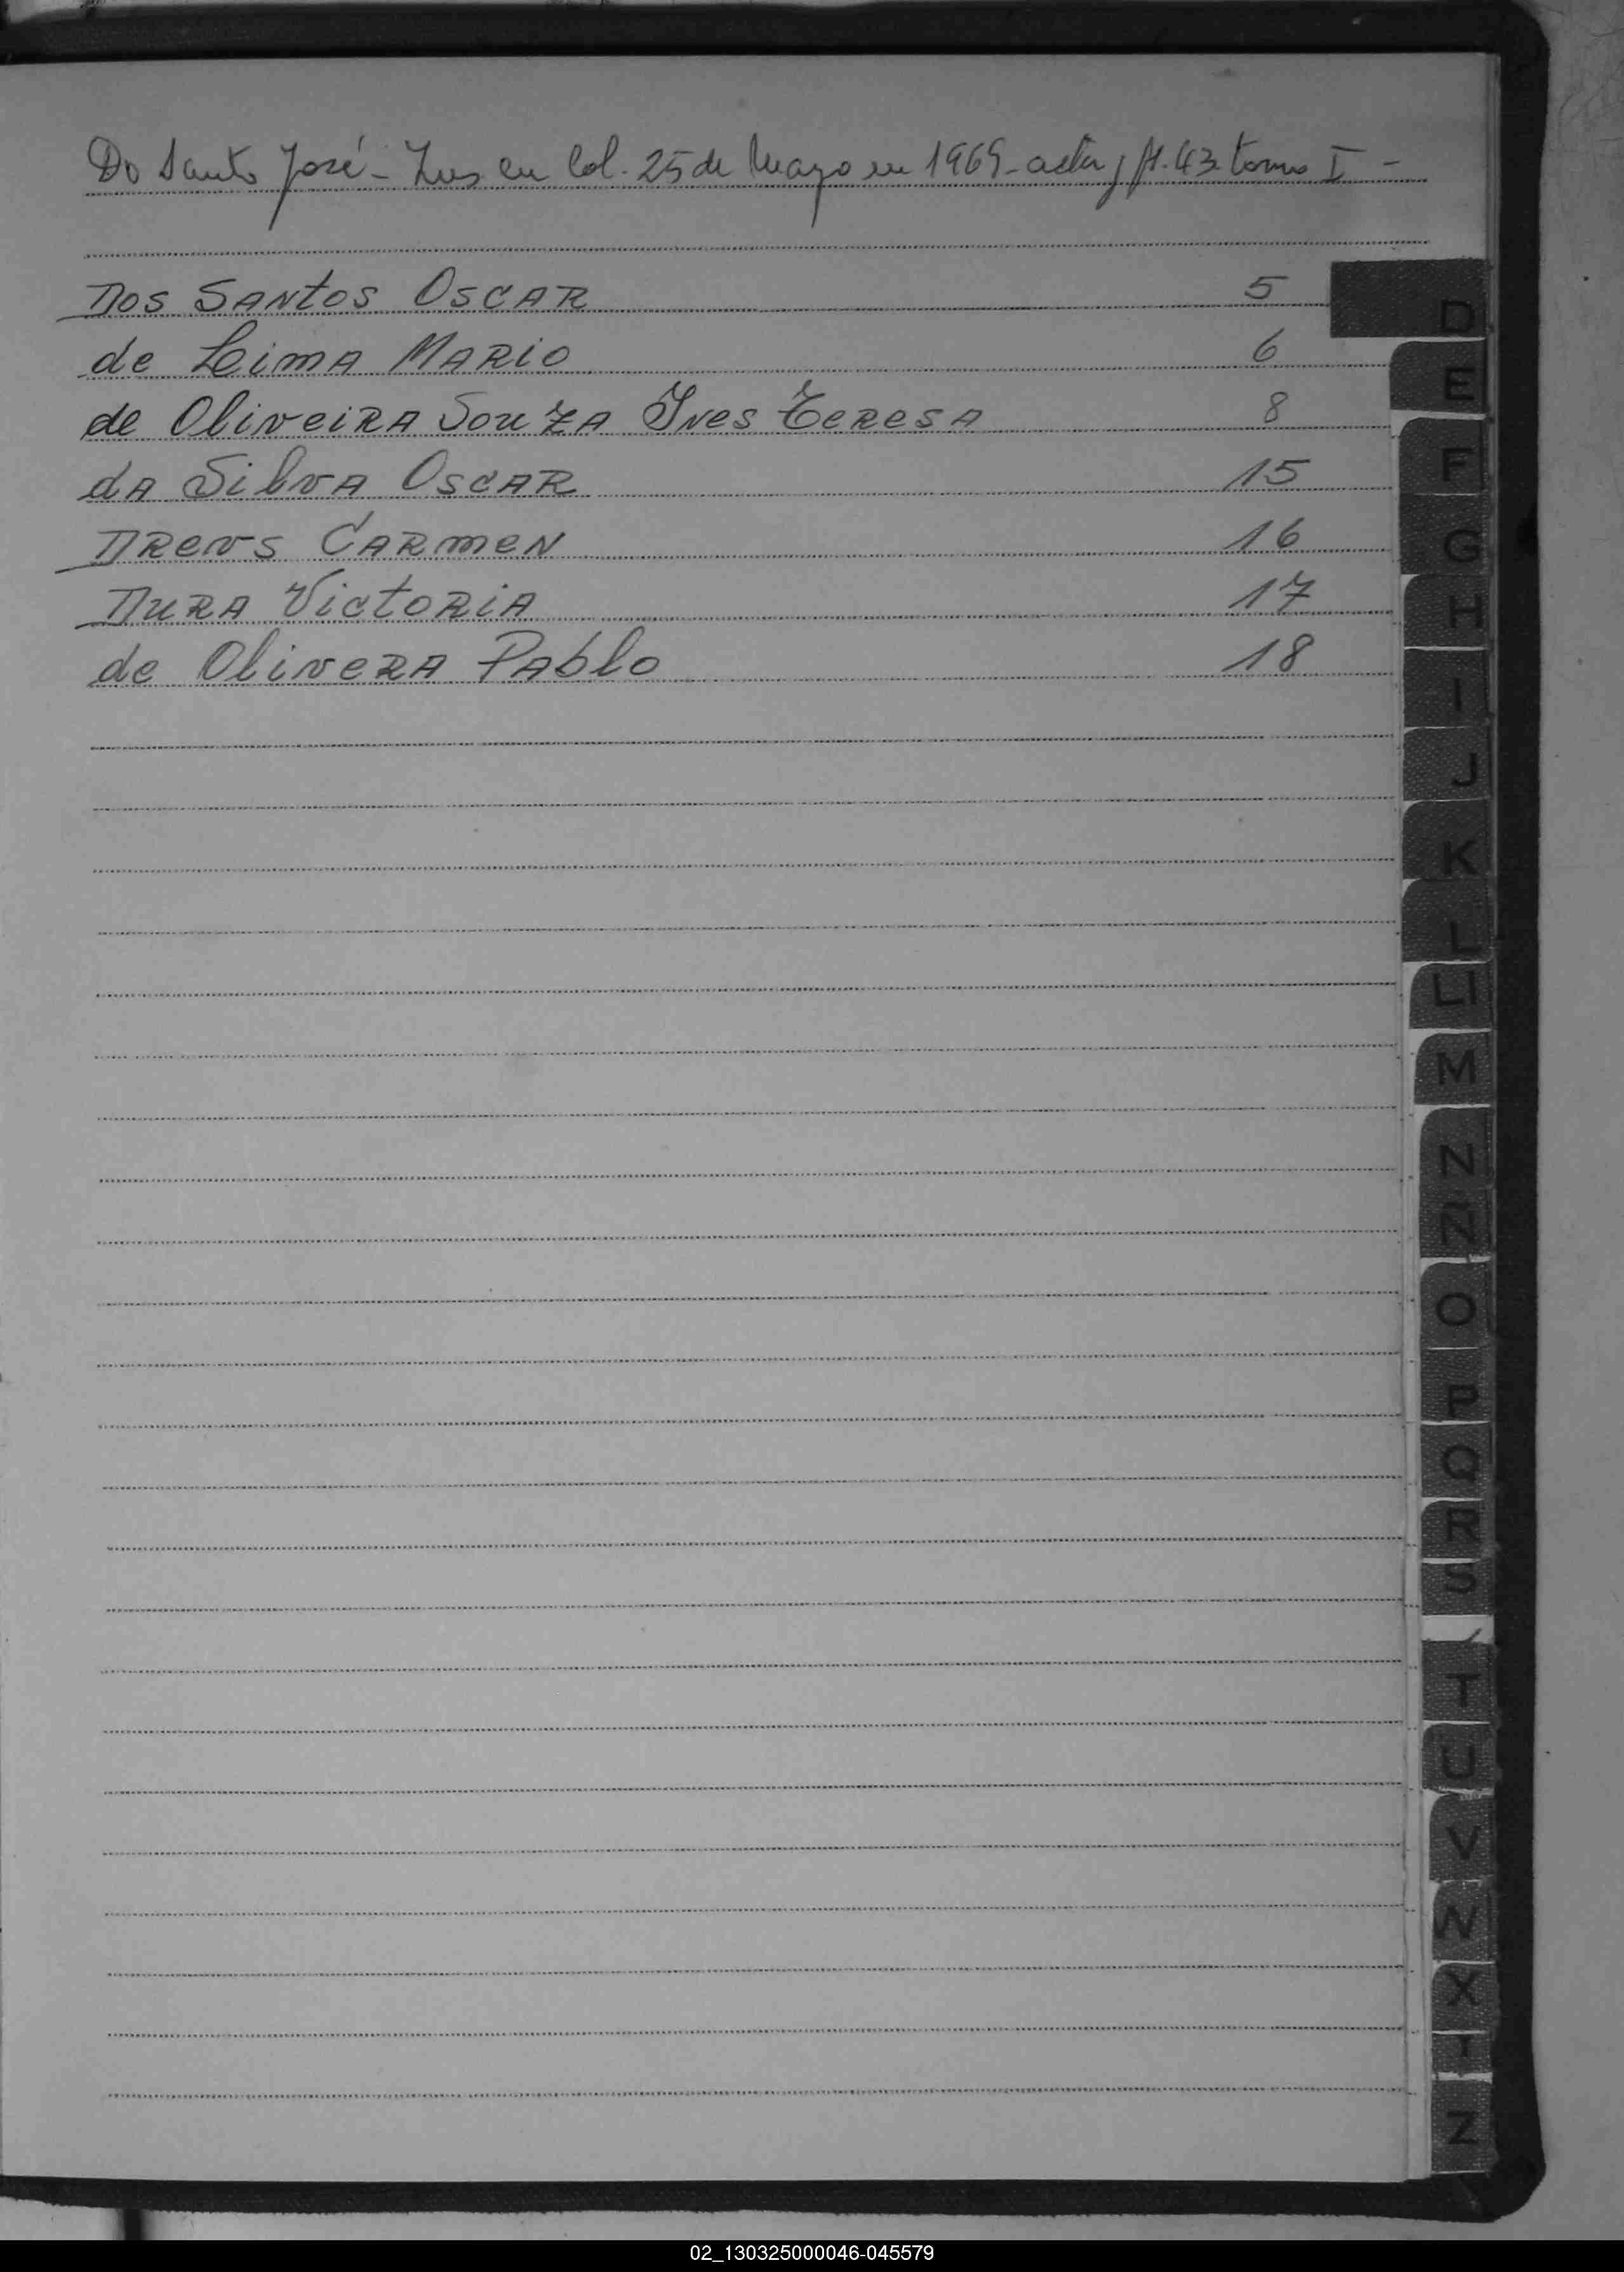 Do Santo José - Ins en Col. 25 de Mayo en 1969 - acta y fº. 43 tomo I -
Dos Santos Oscar 5
de Leima Mario 6
de Oliveira Souza Ynes Teresa 8
da Silva Oscar 15
Drevs Carmen 16
Dura Victoria 17
de Olivera Pablo 18
D
E
F
G
H
I
J
K
L
Ll
M
N
Ñ
O
P
Q
R
S
T
U
V
W
X
Z
02_130325000046-045579